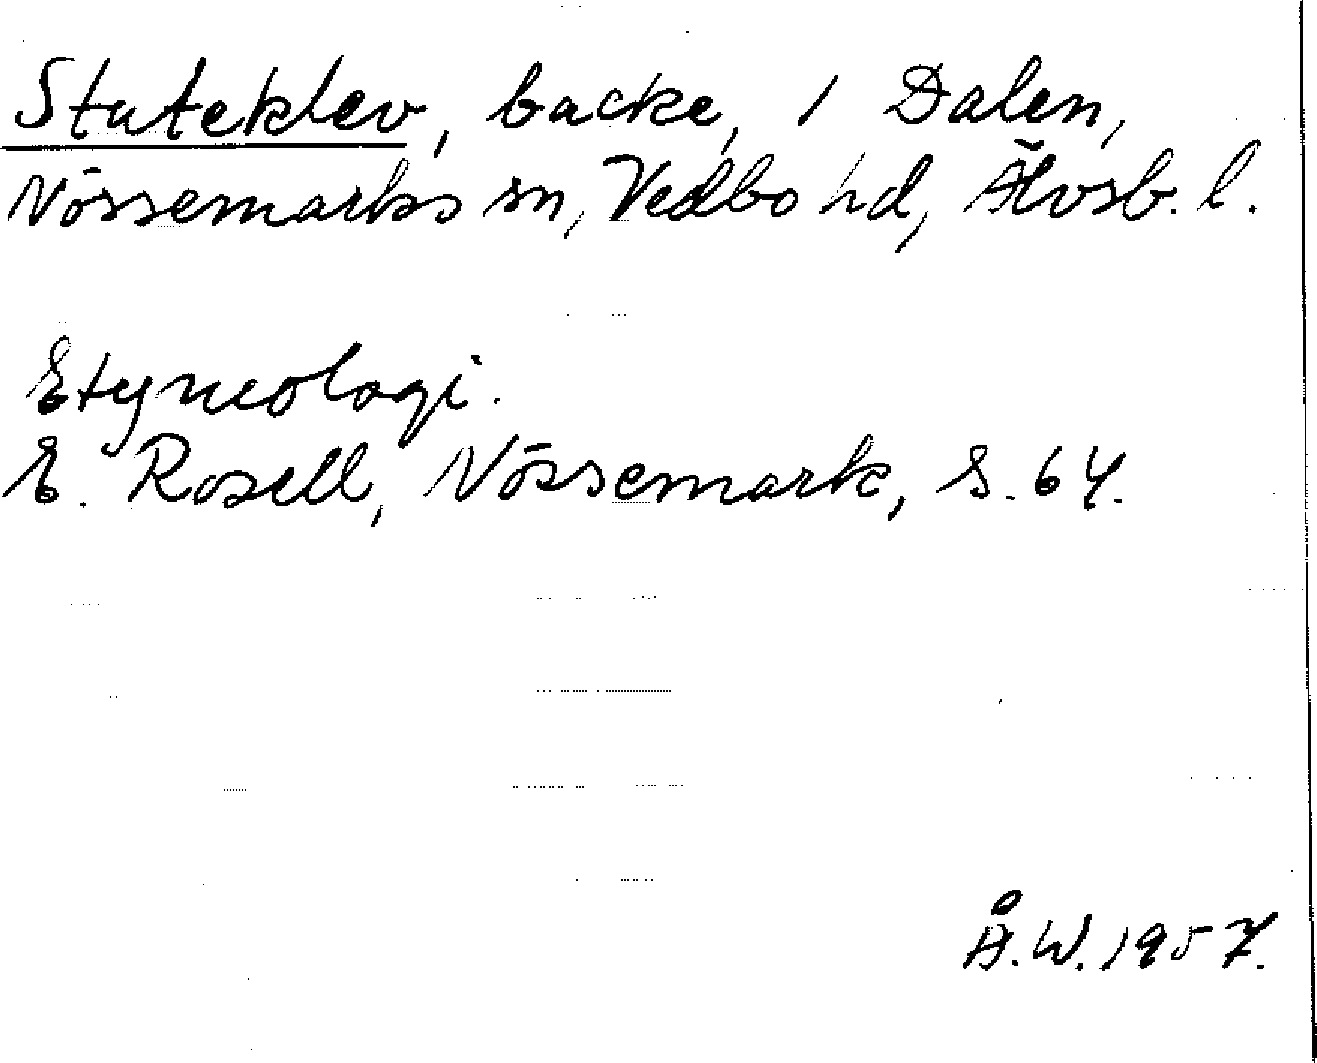 Stuteklev, backe, 1 Dalen,
Nössemarks sn, Vedbo hd, Älvsb. l.
Etymologi.
E. Rosell, Nössemark, s. 64.
Å.W. 1957.